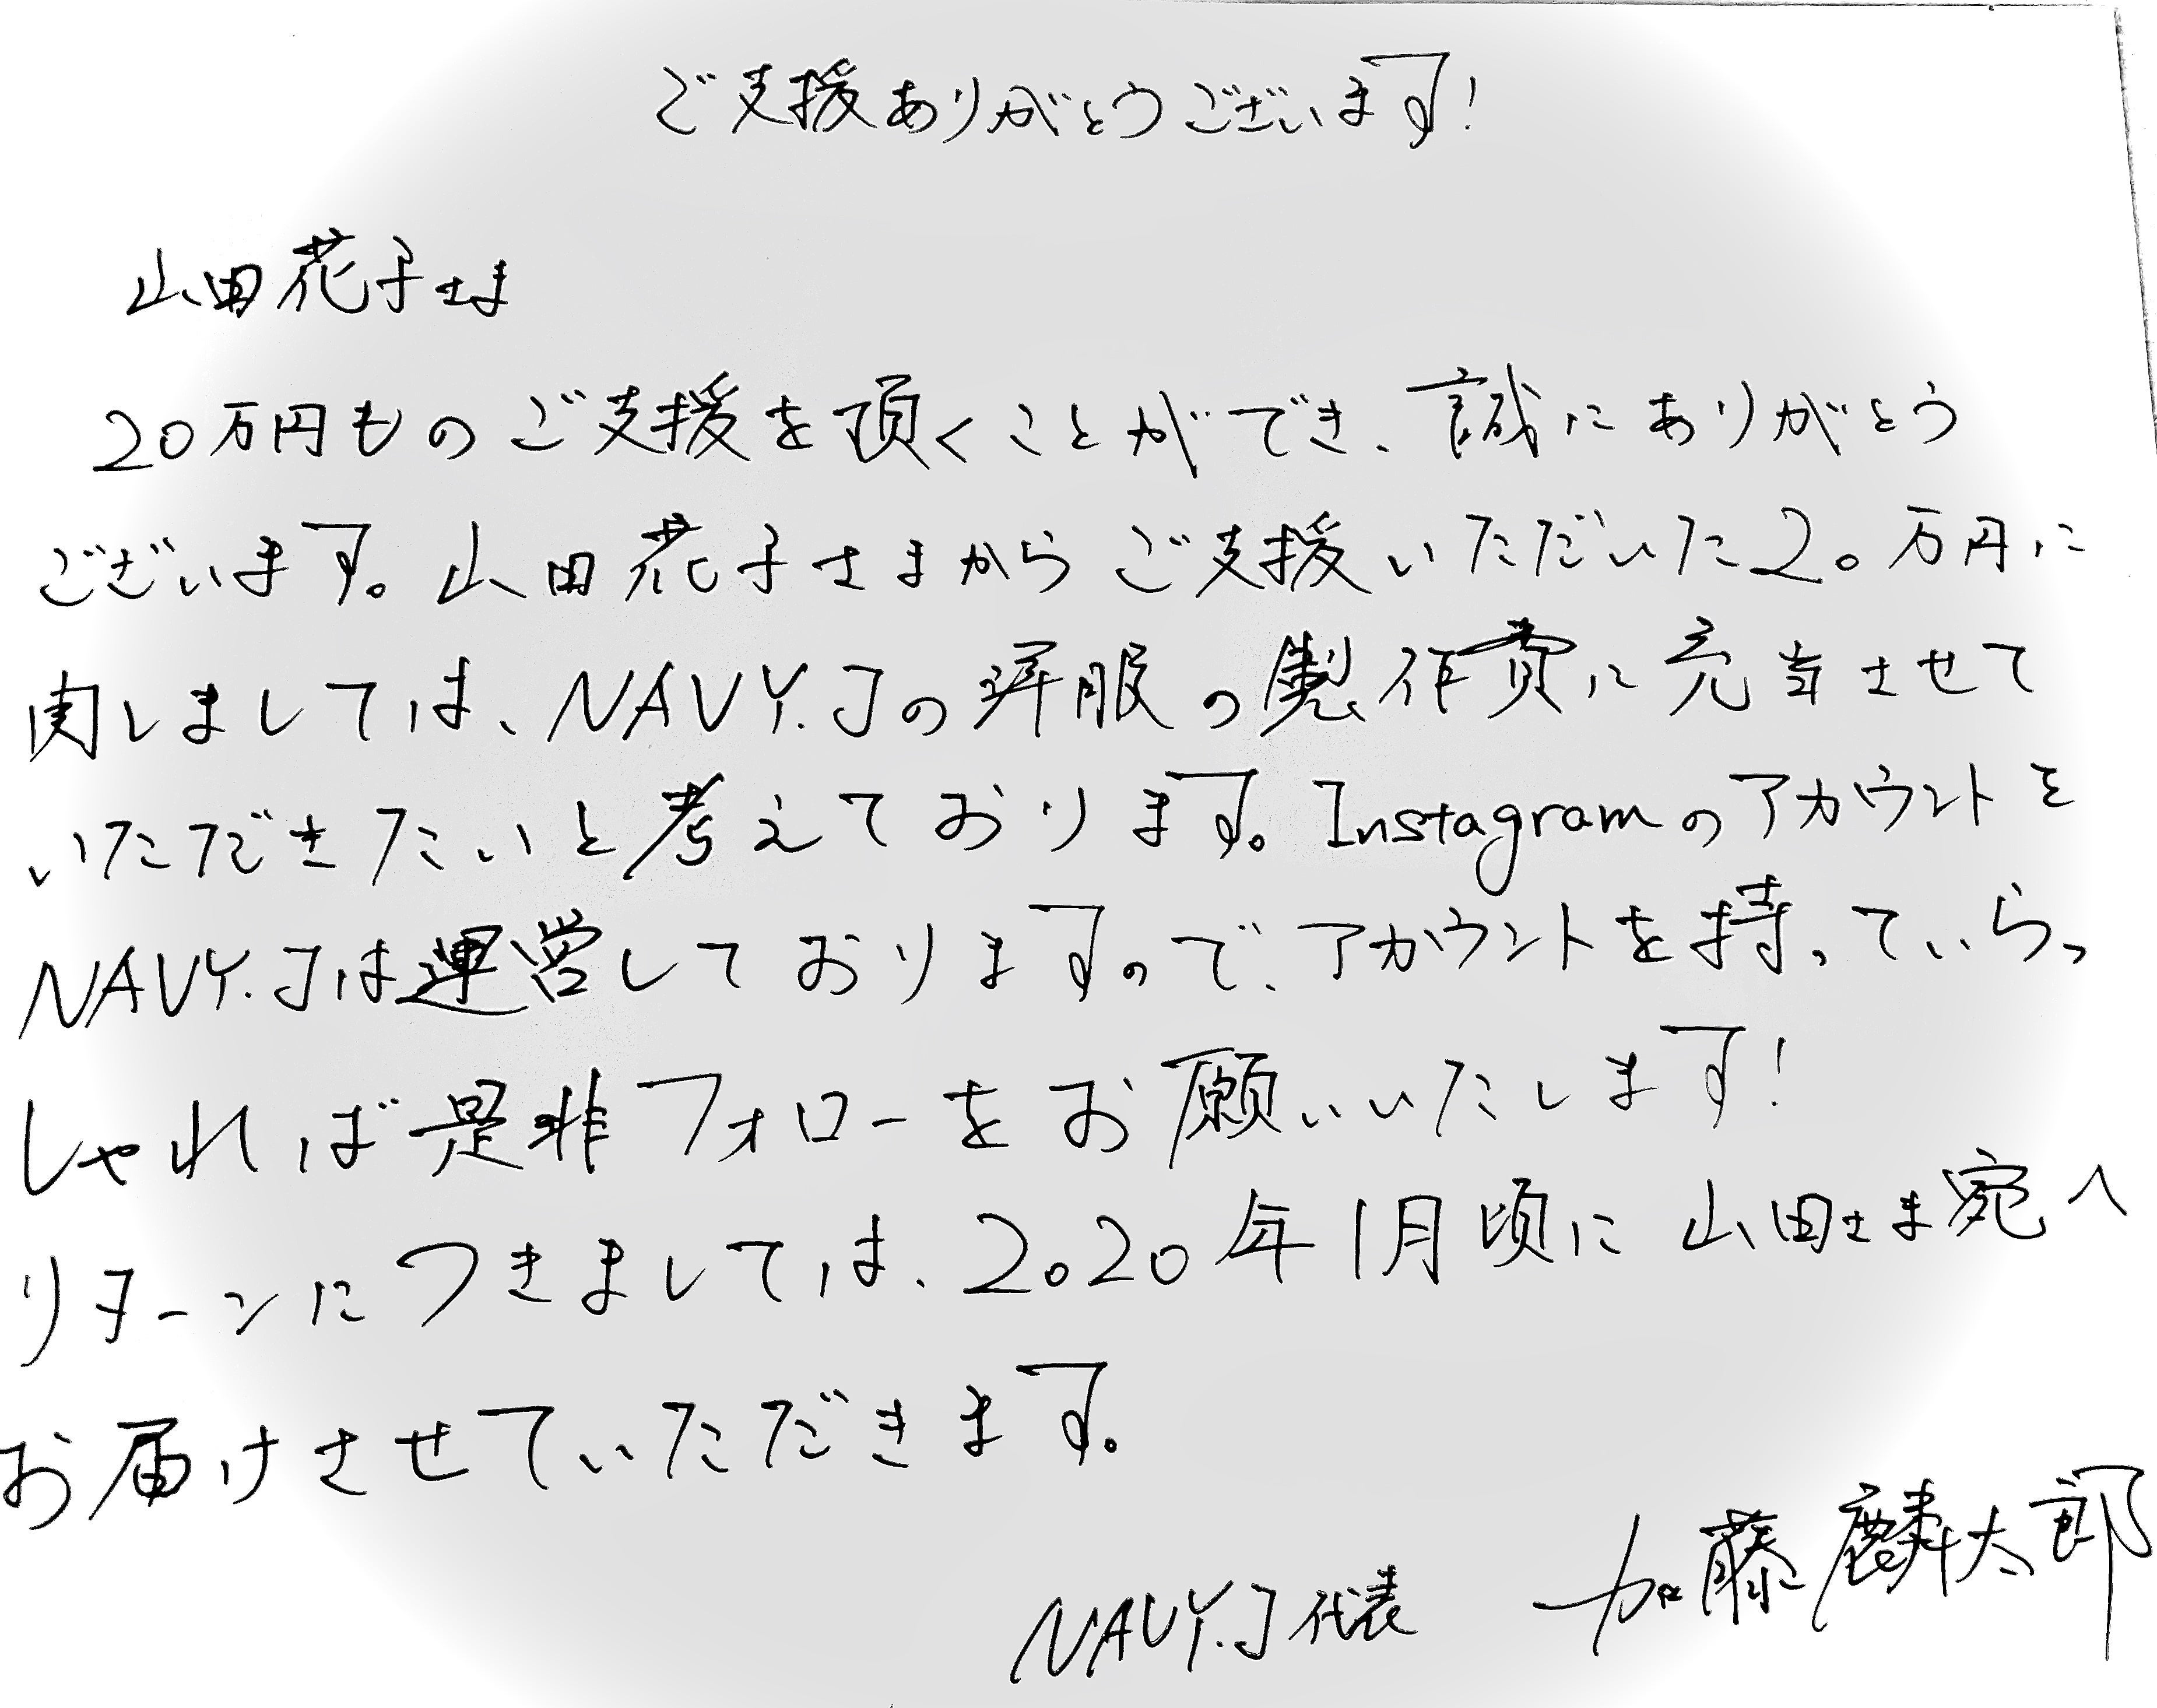 ご支援ありがとうございます!
山田花子さま
20万円ものご支援を頂くことができ、誠にありがとう
ございます。山田花子さまからご支援いただいた20万円に
関しましては、NAVY.Jの洋服の製作費に充当させて
いただきたいと考えております。Instagramのアカウントを
NAVY.Jは運営しておりますので、アカウントを持っていらっ
しゃれば是非フォローをお願いいたします!
リターンにつきましては、2020年1月頃に山田さま宛へ
お届けさせていただきます。
NAVY.J代表 加藤麟太郎